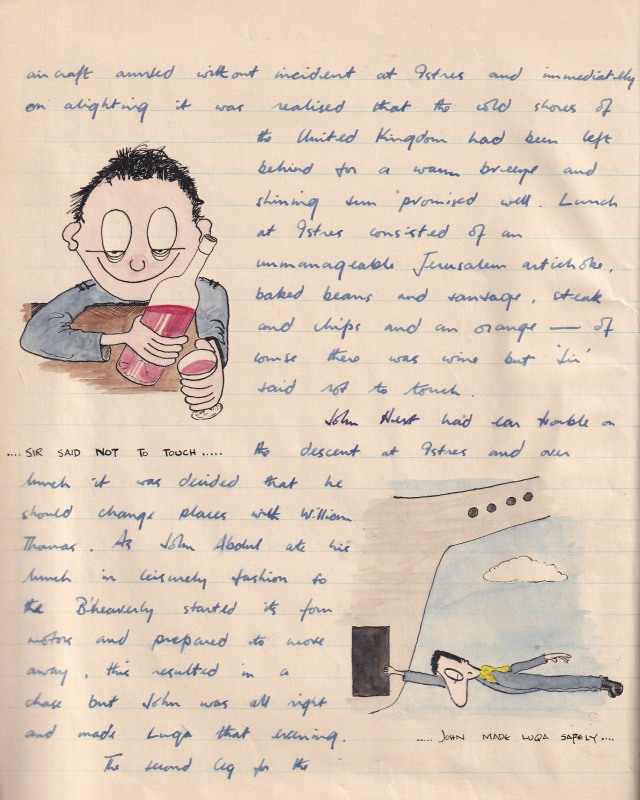 aircraft arrived without incident at Istres and immediately
on alighting it was realised that the cold shores of
the United Kingdom had been left
behind for a warm breeze and
shining sun promised well. Lunch
at Istres consisted of an
unmanageable Jerusalem artichoke,
baked beans and sausage, steak
and chips and an orange — of
course there was wine but 'Sir'
said not to touch.
John Hurst had ear trouble on
.... SIR SAID NOT TO TOUCH .....
the descent at Istres and over
lunch it was decided that he
should change places with William
Thomas. As John Abdul ate his
lunch in leisurely fashion so
the B'heaverly started its four
motors and prepared to move
away, this resulted in a
chase but John was all right
and made Luqa that evening.
..... JOHN MADE LUQA SAFELY ....
The second leg for the